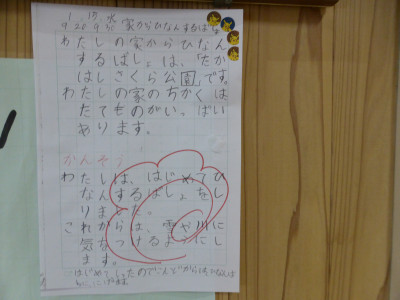 家からひなんするばしょ
わたしの家からひなん
するばしょは、「たか
はしさくら公園」です。
わたしの家のちかくは
たてものがいっぱい
あります。
かんそう
わたしは、はじめてひ
なんするばしょをし
りました。
これからは、雪や川に
気をつけるようにし
ます。